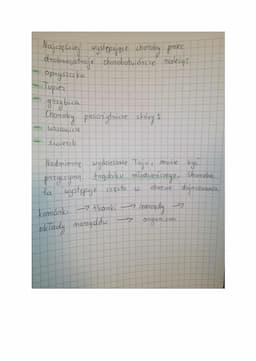 Najczęściej występujące choroby przez
drobnoustroje chorobotwórcze należą:
- opryszczka
- Łupież
- grzybica
Choroby pasożytnicze skóry:
- wszawica
- świerzb
Nadmierne wydzielanie łoju, może być
przyczyną trądziku młodzieńczego. Choroba
ta występuje często w okresie dojrzewania
komórki → tkanki → narządy →
układy narządów → organizm